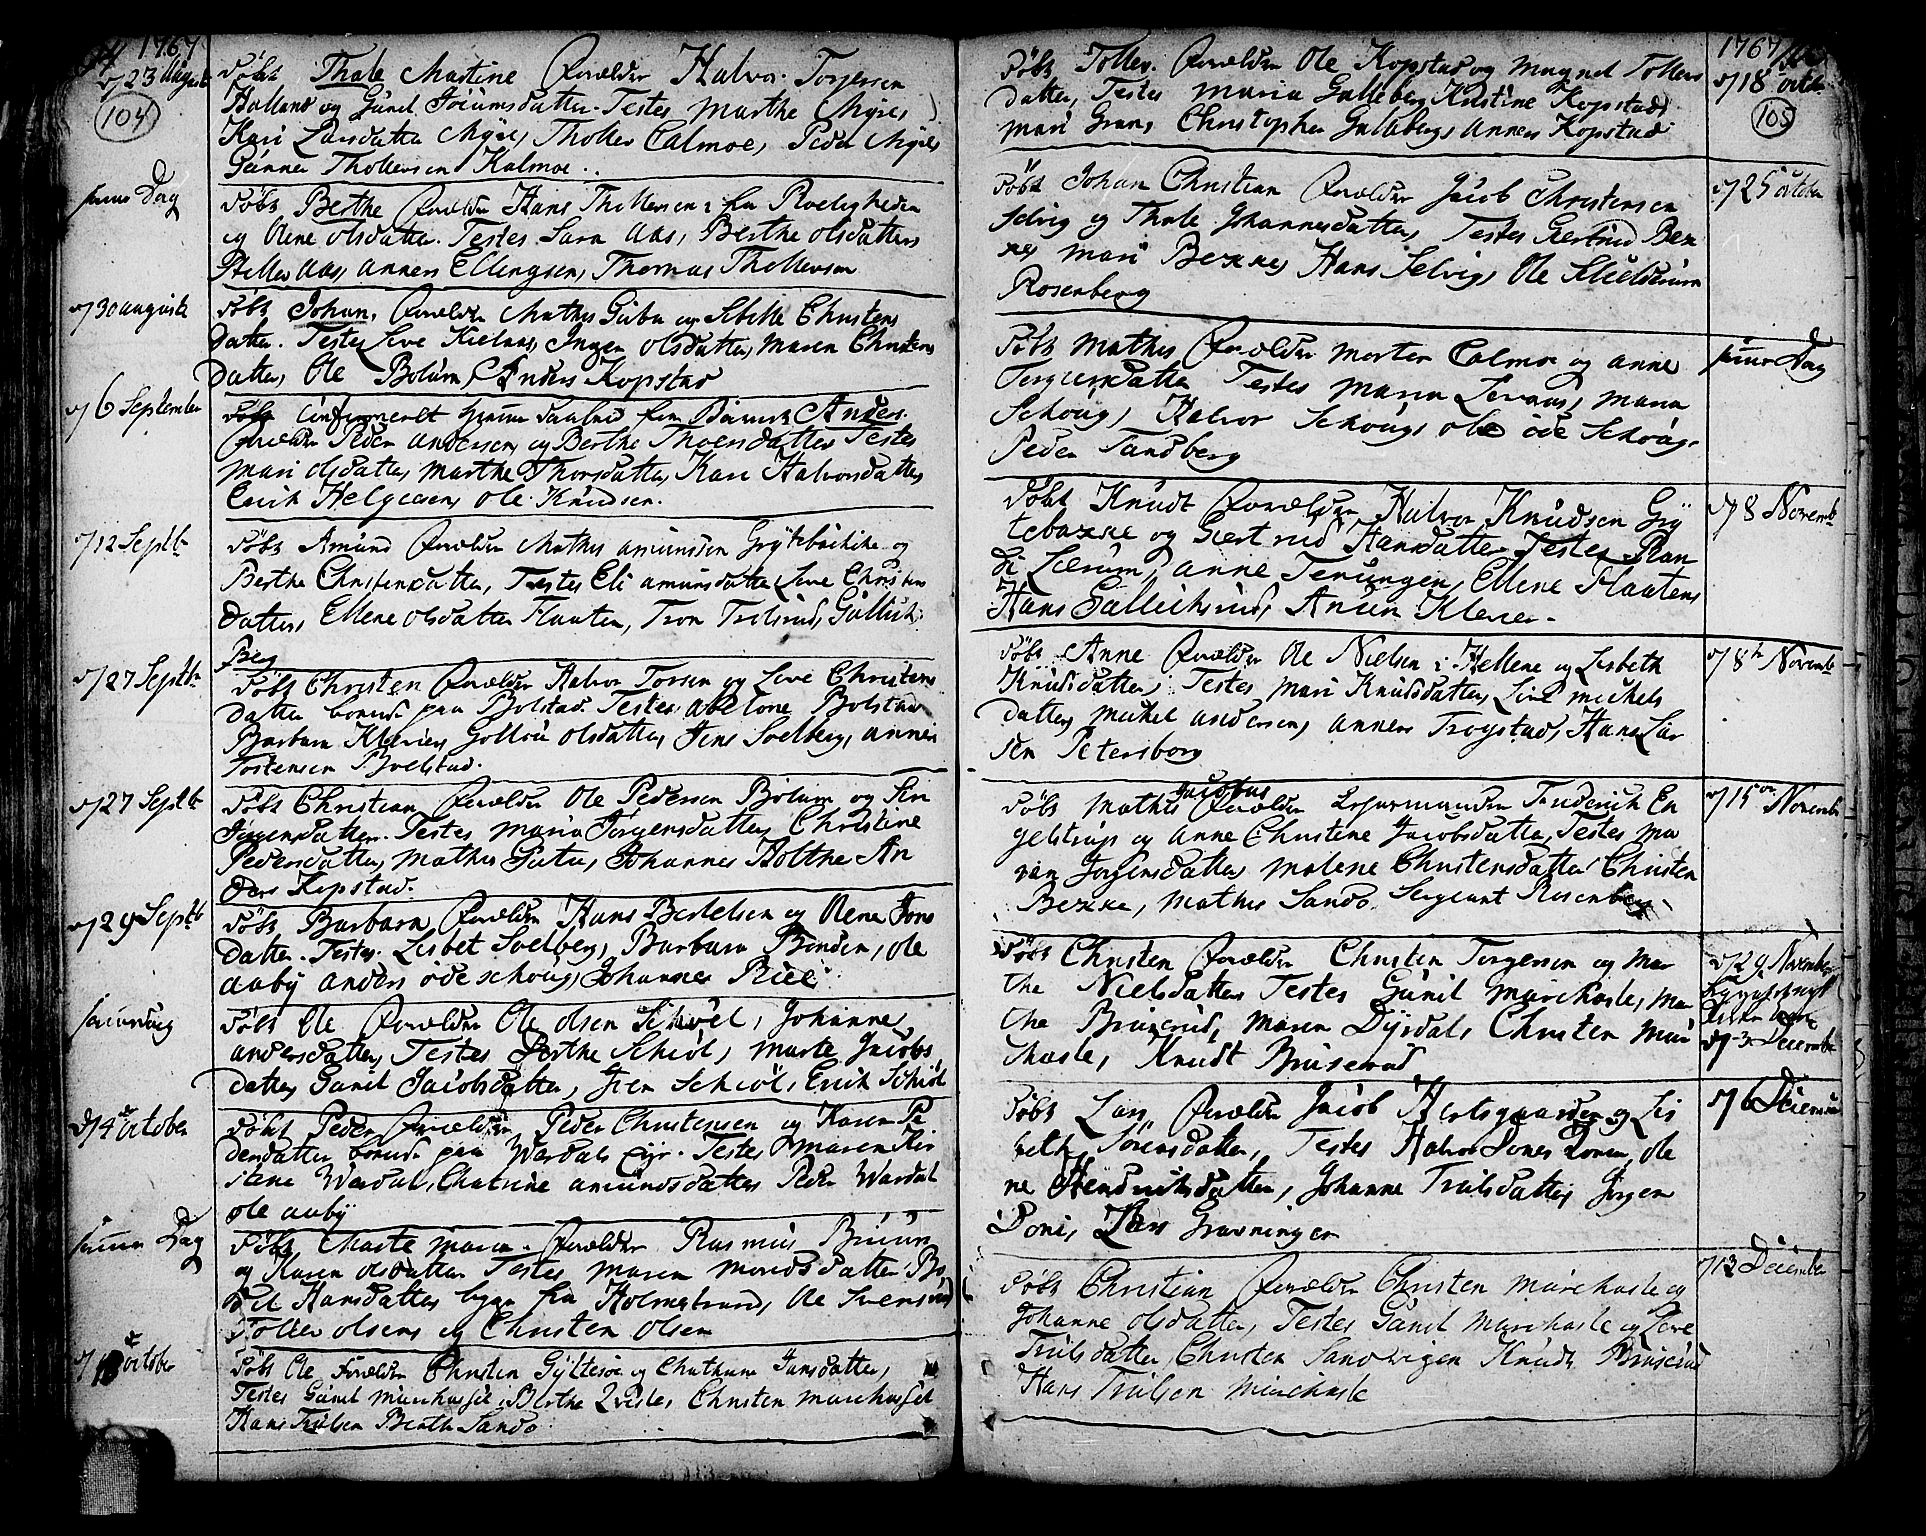 1767
d/ 23 august
104
Døbt Thale Martine Forældre Halvor Torgersen
Holland og Gunil Joramsdatter. Testes Marthe Myre,
Kari Larsdatter Myre, Tholler Calmoe, Peder Myre
Gunner Thollersen Kalmoe.
samme Dag
Døbt Berthe Forældre Hans Thollersen i fra Rolligheden
og Olene Olsdatter. Testes Sara Aas, Berthe Olsdatter
Aas, Anners Ellingsen, Thomas Thollersen
d/ 30 augusti
Døbt Johan, Forældre Mathis Gubu og Sibille Christens
datter. Testes Live Kielaas, Inger Olsdatter, Maren Christens
datter, Ole Bolum, Anders Kopstad
d/ 6 September
confirmeret hjemme Anders.
Forældre Peder Andersen og Berthe Thorsdatter Testes
Mari Olsdatter, Marthe Thorsdatter, Kari Halvorsdatter
Erich Helgesen, Ole Knudsen.
d/ 12 Septbr
Døbt Amund Forældre Mathis Amundsen Grytebachke og
Berthe Christensdatter, Testes Eli Amunsdatter, Live Christens
datter, Ellene Olsdatter Flaaten, Tron Trolsrud, Gullich
Berg
d/ 27 Septbr
Døbt Christen Forældre Halvor Torsen og Live Christens
datter boende paa Bolstad. Testes Abelone Bolstad
Barbara Klever, Gollou Olsdatter, Jens Solberg, Anners
Tostensen Bolstad.
d/ 27 Septbr
Døbt Christian Forældre Ole Pedersen Bolum og Siri
Jørgensdatter. Testes Maria Jørgensdatter, Christine
Pedersdatter, Mathis Gutu, Johannes Holthe An
ders Kopstad.
d/ 29 Septbr
Døbt Barbara, Forældre Hans Bertelsen og Olene Jons
datter. Testes. Lisbet Solberg, Barbara Binden, Ole
Aaby Anders Øde Schoug, Johannes Riee.
samme dag
Døbt Ole Forældre Ole Olsen Schøel, Johanne
Andersdatter, Testes Berthe Schiøl, Marte Jacobs
datter, Gunil Jacobsdatter, Iver Schiøl, Erich Schiøl
d/ 4 October
Døbt Peder Forældre Peder Christensen og Karen Pe
dersdatter boende paa Wardals Eje. Testes Maren Kir
stene Wardal, Chatrine Amundsdatter Peder Wardal
Ole Aaby
samme Dag
Døbt Marte Maria. Forældre Rasmus Bruun
og Karen Olsdatter Testes Maren Moridsdatter, Bo
del Hansdatter begge fra Holmestrand, Ole Svensrud
Toller Olsens og Christen Olsen
d/ 18 October
Døbt Ole Forældre Christen Gyltesøe og Chatharina Jansdatter,
Testes Gunil Murchasset, Berthe Qviste, Christen Murchasset
Hans Trulsen Berthe Sando
1767
105
d/ 18 October
Døbt Toller. Forældre Ole Kopstad og Magnil Tollers
datter, Testes Maria Galleberg Kirstine Kopstad,
Mari Gran, Christopher Galleberg, Anners Kopstad
d/ 25 october
Døbt Johan Christian Forældre Jacob Christensen
Selvig og Thale Johannesdatter, Testes Giertrud Bex
xe, Mari Bexxe, Hans Selvig, Ole
Rosenberg
samme Dag
Døbt Mathis Forældre Morten Calmoe og Anne
Torgiersdatter Testes Maria Leraas, Maria
Schoug, Halvor Schoug, Ole Øde Schoug.
Peder Sandberg
d/ 8 Novembr
Døbt Knudt Forældre Halvor Knudsen Gry
tebaxke og Giertrud Hansdatter Testes Ran
di Lørum, Anne Teruingen, Ellene Flaaten,
Hans Gallichsrud, Anun Klever.
d/ 8te Novembr
Døbt Anne Forældre Ole Nielsen i Hellene og Lisbeth
Knudsdatter, Testes Mari Knudsdatter, Live Michels
datter, Michel Andersen, Anners Trogstad, Hans Lar
sen Petersborg
d/ 15 Novembr
Døbt Mathis Jacobus Forældre Friderich En
gelstrup og Anne Christine Jacobsdatter, Testes Ma
ren Jørgensdatter, Malene Christensdatter Christen
Bexxe, Mathis Sando. Sergeant Rosenberg.
d/ 29 November
d/ 3 December
Døbt Christen Forældre Christen Torgersen og Mar
the Nielsdatter Testes Gunil Murchasle, Mar
the Bruserud, Maren Dyrdal, Christen Mur
chasle, Knudt Bruserud
d/ 6 Decembr
Døbt Lars Forældre Jacob Hertsgaarden og Lis
beth Sørensdatter, Testes Halvor Jones Loven, Ole
ne Hendrichsdatter, Johanne Trulsdatter, Jørgen
Poni, Lars Gravningen
d/ 13 December
Døbt Christian Forældre Christen Murchasle og
Johanne Olsdatter, Testes Gunil Murchasle og Live
Trulsdatter, Christen Sandvigen Knudt Bruserud
Hans Trulsen Murchasle